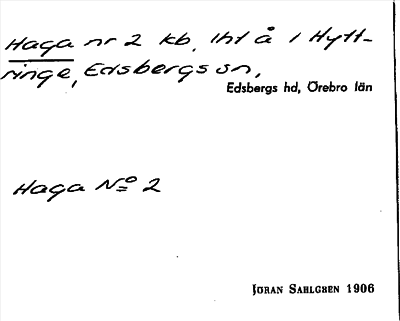 Haga nr 2 kb, lht å i Hytt-
ringe, Edsbergs sn,
Edsbergs hd, Örebro län
Haga No 2
Jöran Sahlgren 1906